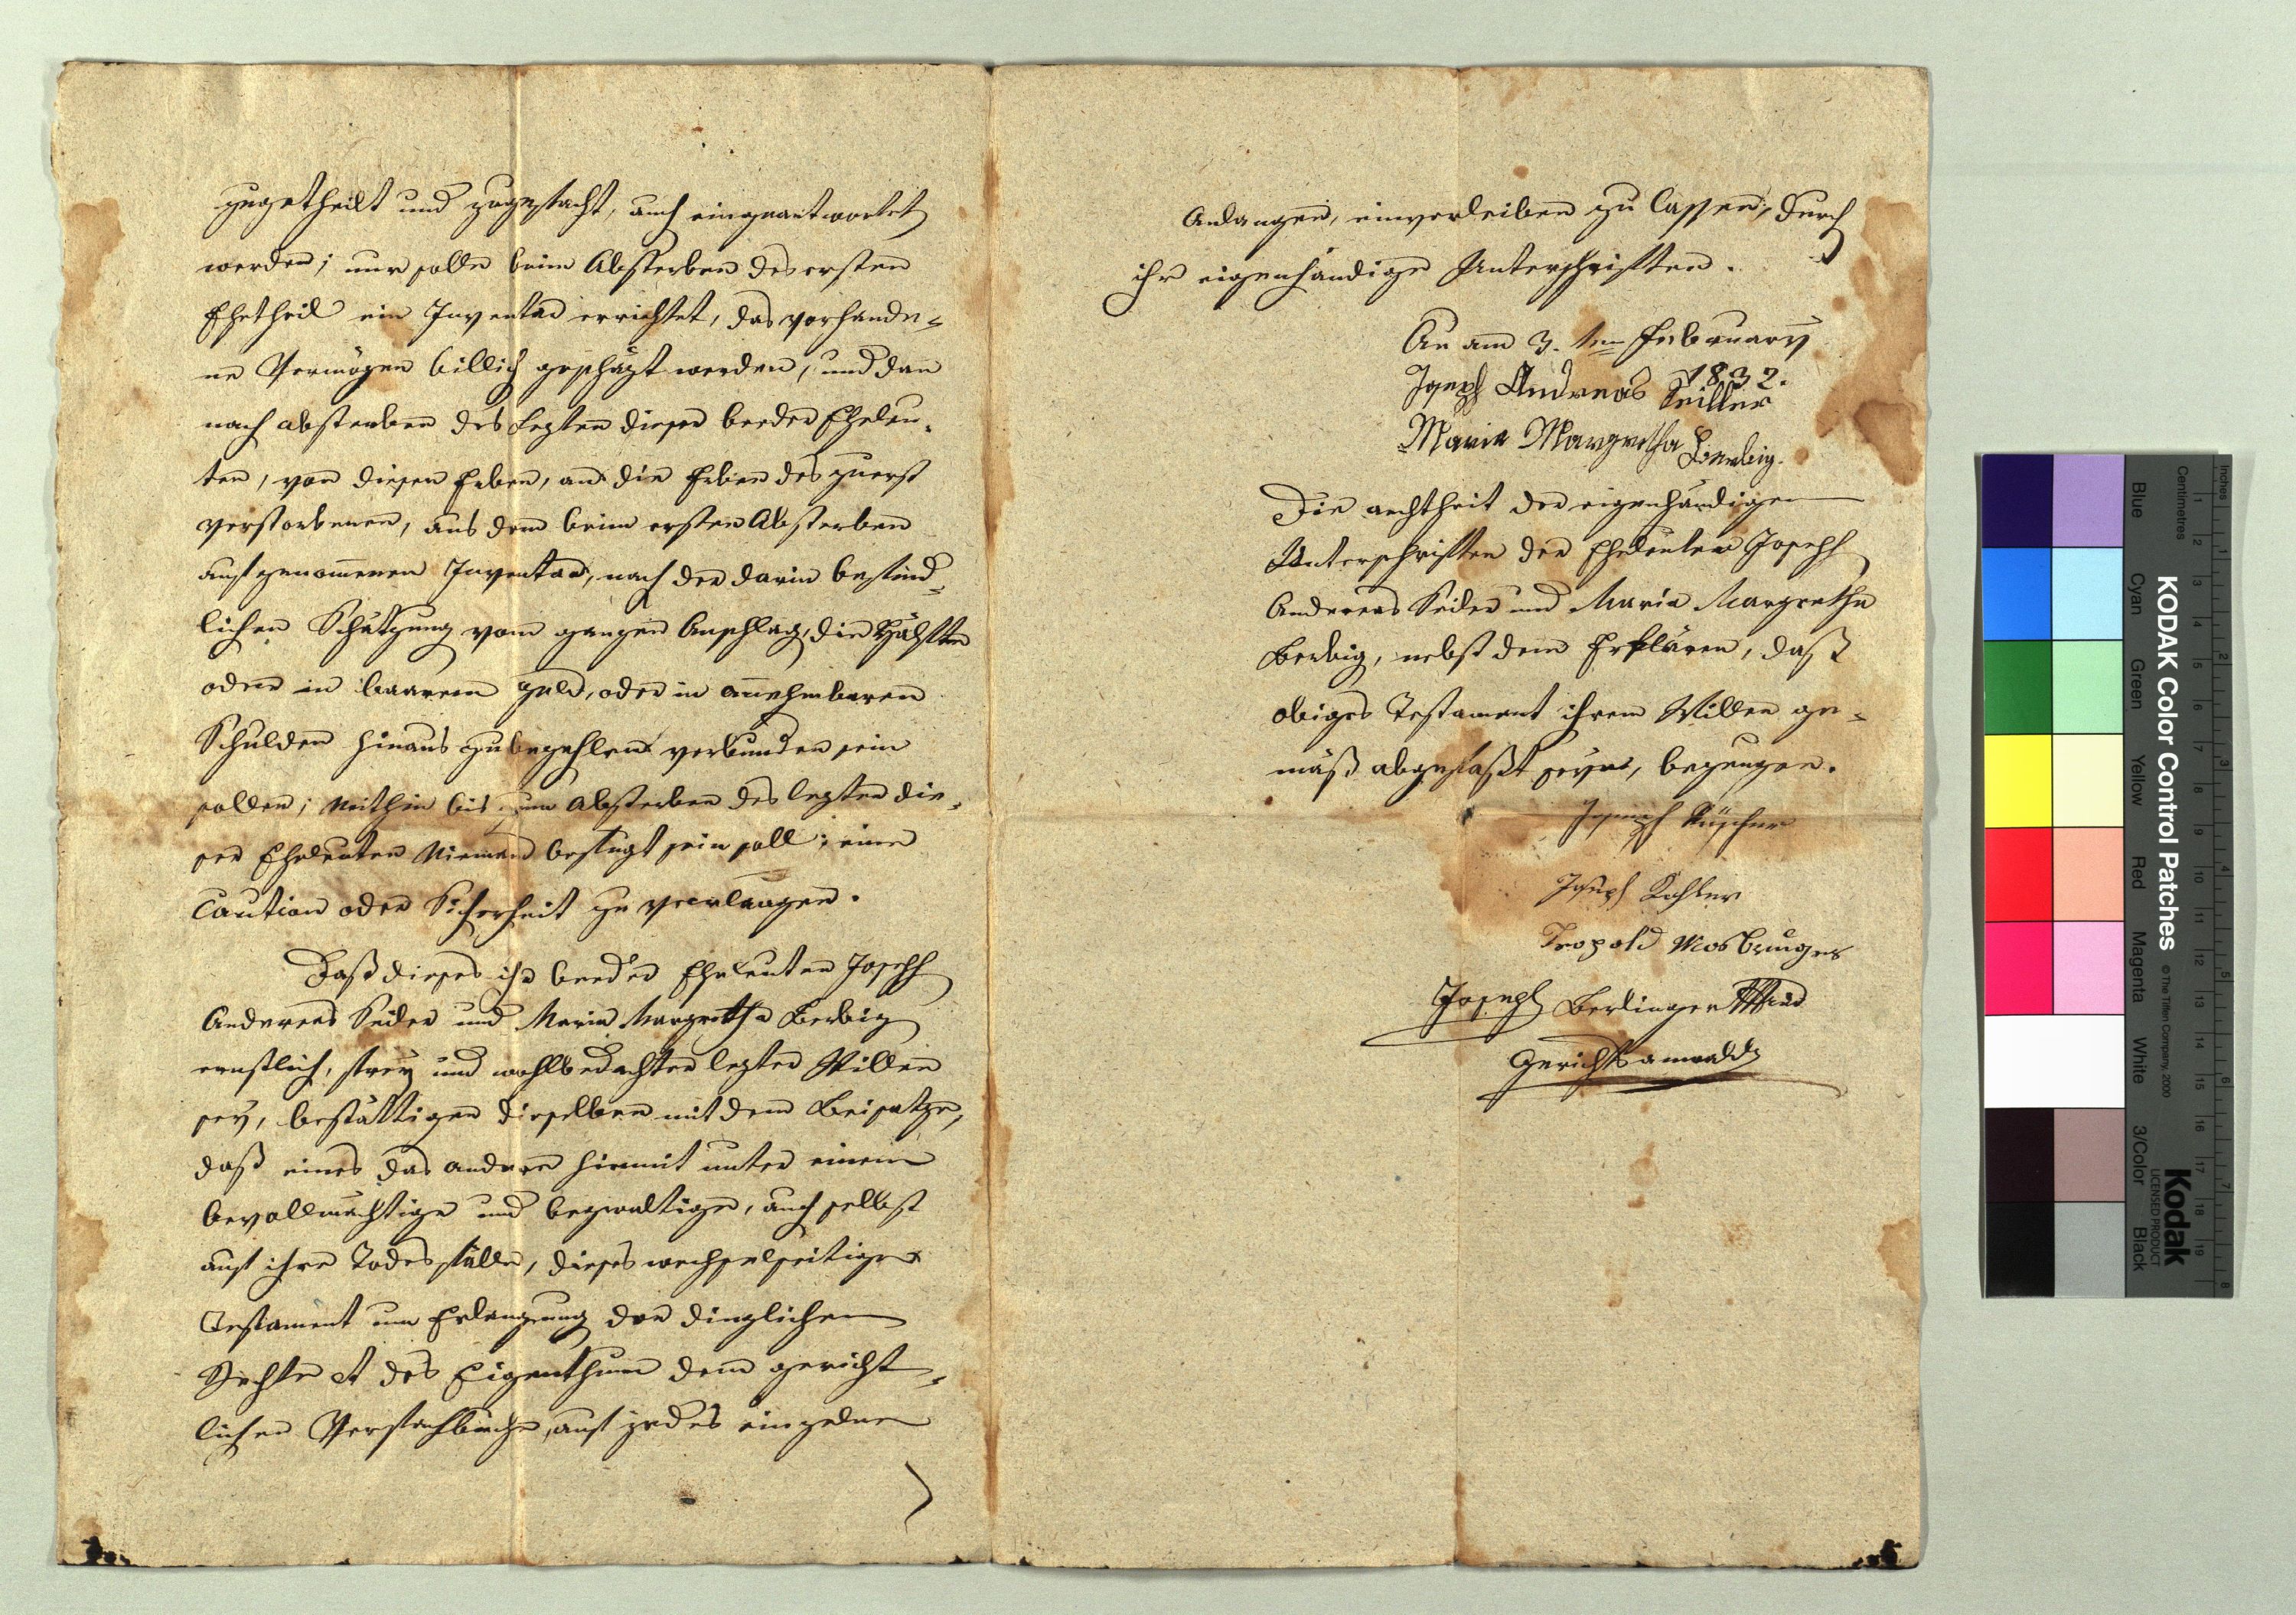 zugetheilt und zugestacht, auch eingeantwortet
werden; nur solle beim Absterben des ersten
Ehetheil ein Inventar errichtet, das vorhande=
ne Vermögen billich geschäzt werden, und dan
nach absterben des Lezten dieser beeder Eheleu=
ten, von diesen Erben, an die Erben des zuerst
verstorbenen, aus dem beim ersten Absterben
aufgenommenen Inventar, nach der darin befind=
lichen Schätzung vom ganzen Anschlag, die Hälfte
oder in baarem Geld, oder in annehmbaren
Schulden hinaus zubezahlen verbunden sein
sollen; Mithin bis zum Absterben des lezten die=
ser Eheleuten Niemand befugt sein soll; eine
Caution oder Sicherheit zu verlangen.
Daß dieses ihr beeder Eheleuten Joseph
Andreas Seiler und Maria Margretha Berbig
ernstlich, frey und wohlbedachter lezter Willen
sey, bestättigen dieselben mit dem Beisatze,
daß eines das andere hiemit unter einem
bevollmächtige und begwaltige, auch selbst
auf ihre Todesfälle, dieses wechselseitige
Testament um Erlangung der dinglichen
Rechte et des Eigenthum dem gericht=
lichen Verfachbuche, auf jedes einzelne
Anlangen, einverleiben zu lassen, durch
ihr eigenhändige Unterschriften.
Au am 3. ten February
1832.
Joseph Andreas Seiller
Maria Margretha Berbig.
Die aechtheit der eigenhändigen
Unterschriften der Eheleuten Joseph
Andreas Seiler und Maria Margretha
Berbig, nebst dem Erklären, daß
obiges Testament ihrem Willen ge=
mäß abgefaßt seye, bezeugen.
Joseph
Joseph Kohler
Leopold Mosbruger
Joseph Berlinger
Gerichtsanwald
KODAK Color Control Patches
© The Tiffen Company, 2000
Kodak
LICENSED PRODUCT
Blue
Cyan
Green
Yellow
Red
Magenta
White
3/Color
Black
Inches
Centimetres
1
2
3
4
5
6
7
8
1
2
3
4
5
6
7
8
9
10
11
12
13
14
15
16
17
18
19